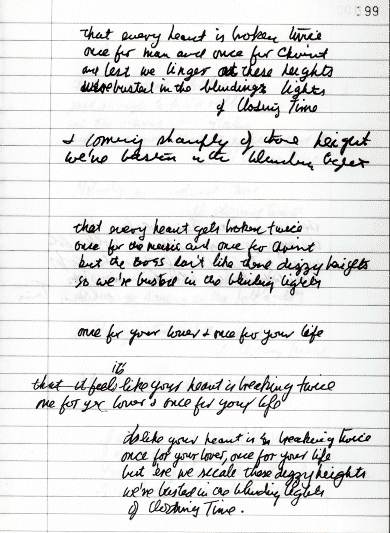 199
that every heart is broken twice
once for man and once for Christ
and lest we linger at these heights
we're busted in the blinding lights
of Closing Time
& coming sharply of those height
we're busted in the blinding lights
that every heart gets broken twice
once for the music and once for Christ
but the Boss don't like these dizzy heights
so we're busted in the blinding lights
one for your lover & once for your life
it
that it feels like your heart is breaking twice
one for yr lover & once for your life
it's like your heart is breaking twice
once for your lover, once for your life
but 'ere we scale these dizzy heights
we're busted in the blinding lights
of Closing Time.